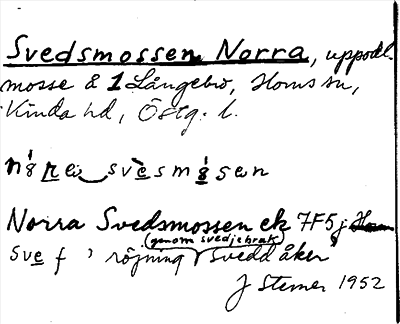 Svedsmossen Norra, uppodl.
mosse å 1 Långebro, Horns sn,
Kinda hd, Östg. l.
svesmosen
Norra Svedsmossen ek 7F5j
(genom svedjebruk)
sve f 'röjning, svedd åker'
J Sterner 1952